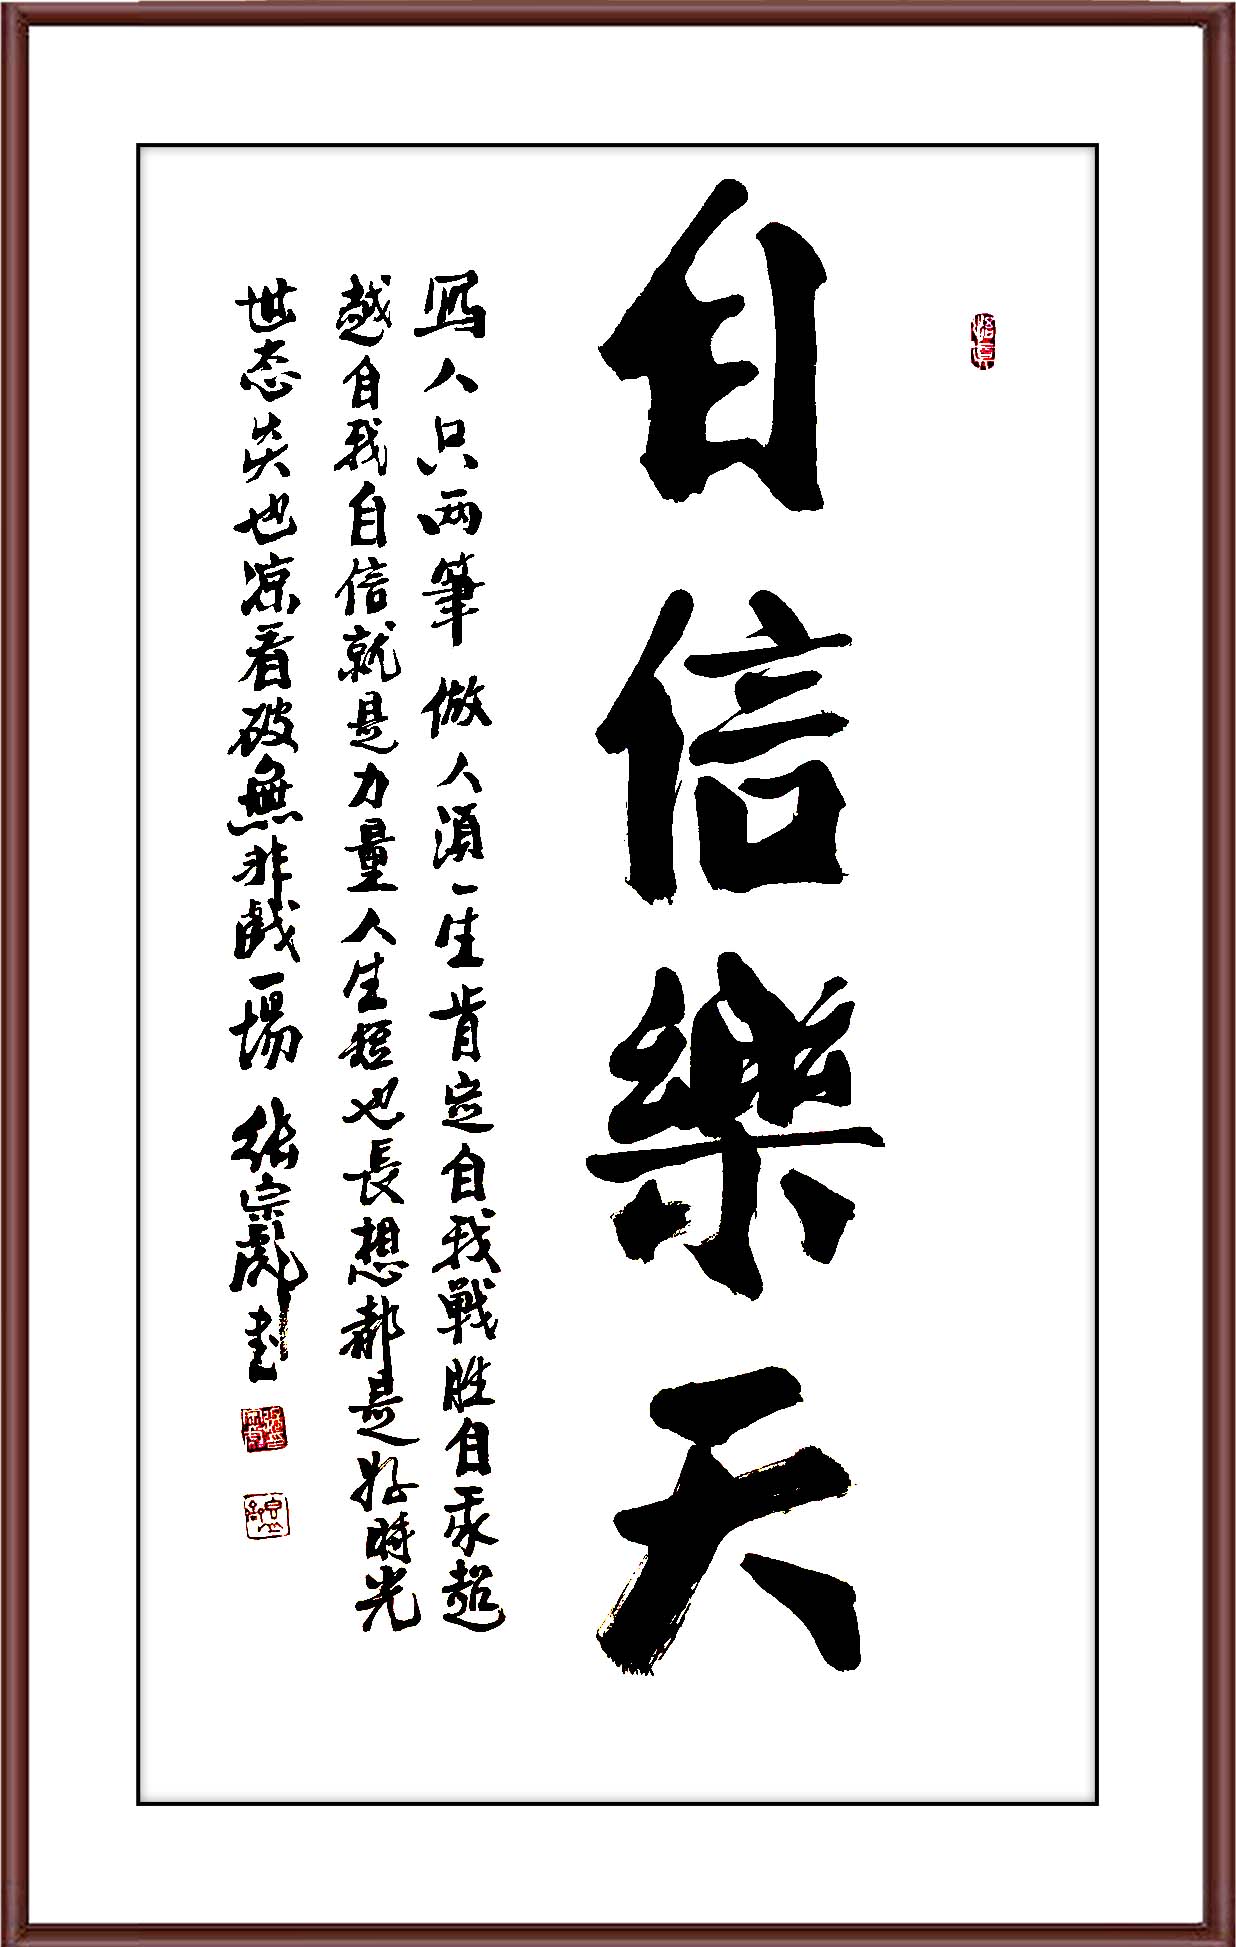 自信樂天
寫人只两筆做人須一生肯定自我戰胜自我超
越自我自信就是力量人生短也長想都是好時光
世态炎也凉看破無非戲一場張宗彪書